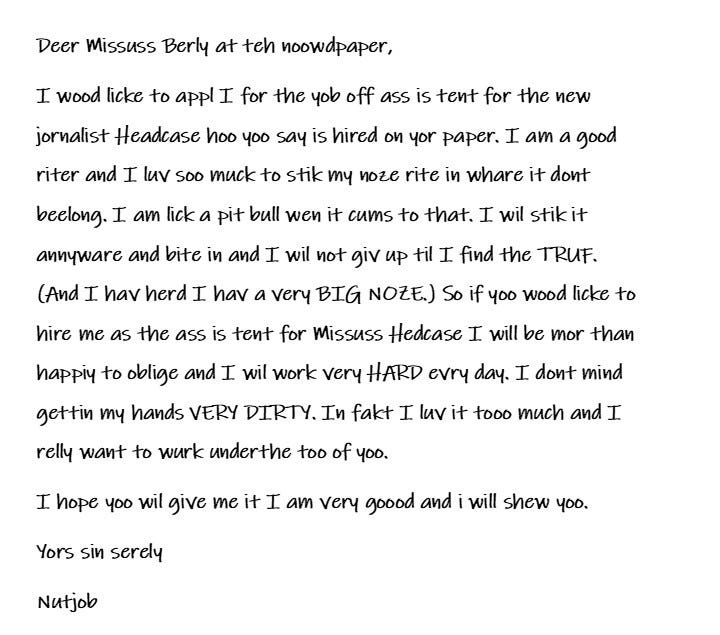 Deer Missuss Berly at teh noowdpaper,
I wood licke to appl I for the yob off ass is tent for the new
jornalist Headcase hoo yoo say is hired on yor paper. I am a good
riter and I luv soo muck to stik my noze rite in whare it dont
beelong. I am lick a pit bull wen it cums to that. I wil stik it
annyware and bite in and I wil not giv up til I find the TRUF.
(And I hav herd I hav a very BIG NOZE.) So if yoo wood licke to
hire me as the ass is tent for Missuss Hedcase I will be mor than
happiy to oblige and I wil work very HARD evry day. I dont mind
gettin my hands VERY DIRTY. In fakt I luv it tooo much and I
relly want to wurk underthe too of yoo.
I hope yoo wil give me it I am very goood and i will shew yoo.
Yors sin serely
Nutjob